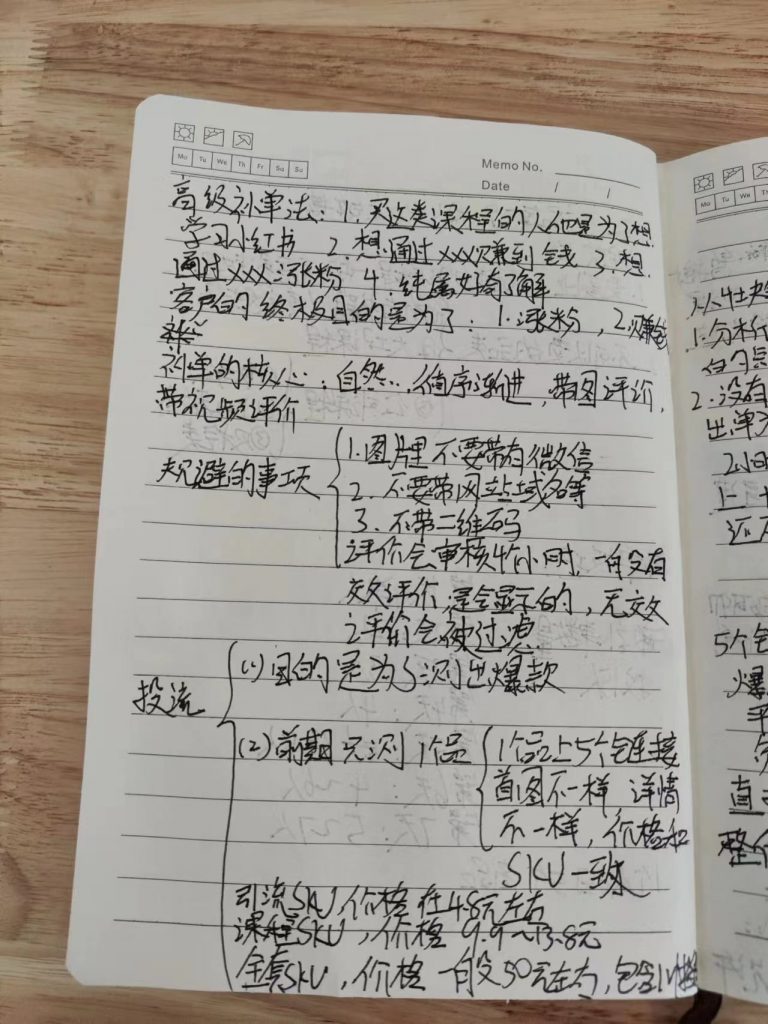 Mo Tu We Th Fr Sa Su
Memo No.
Date / /
高级补单法：1. 买这类课程的人他是为了想
学习小红书 2. 想通过xxx赚到钱 3. 想
通过xxx涨粉 4. 纯属好奇了解
客户的终极目的是为了：1. 涨粉，2. 赚钱
补单的核心：自然..，循序渐进，带图评价，
带视频评价
规避的事项
1. 图片里不要带有微信
2. 不要带网站域名等
3. 不带二维码
评价会审核4个小时，一般有
效评价，是会显示的，无效
评价会被过滤
投流
(1) 目的是为了测出爆款
(2) 前期只测1个品
1个品上5个链接
首图不一样 详情
不一样，价格和
SKU一致
引流SKU，价格在4.8元左右
课程SKU，价格9.9~13.8元
全套SKU，价格一般50元左右，包含
Mo Tu We Th
1. 分析
2. 没有
出单
2小时
5个
爆
平
直
整个